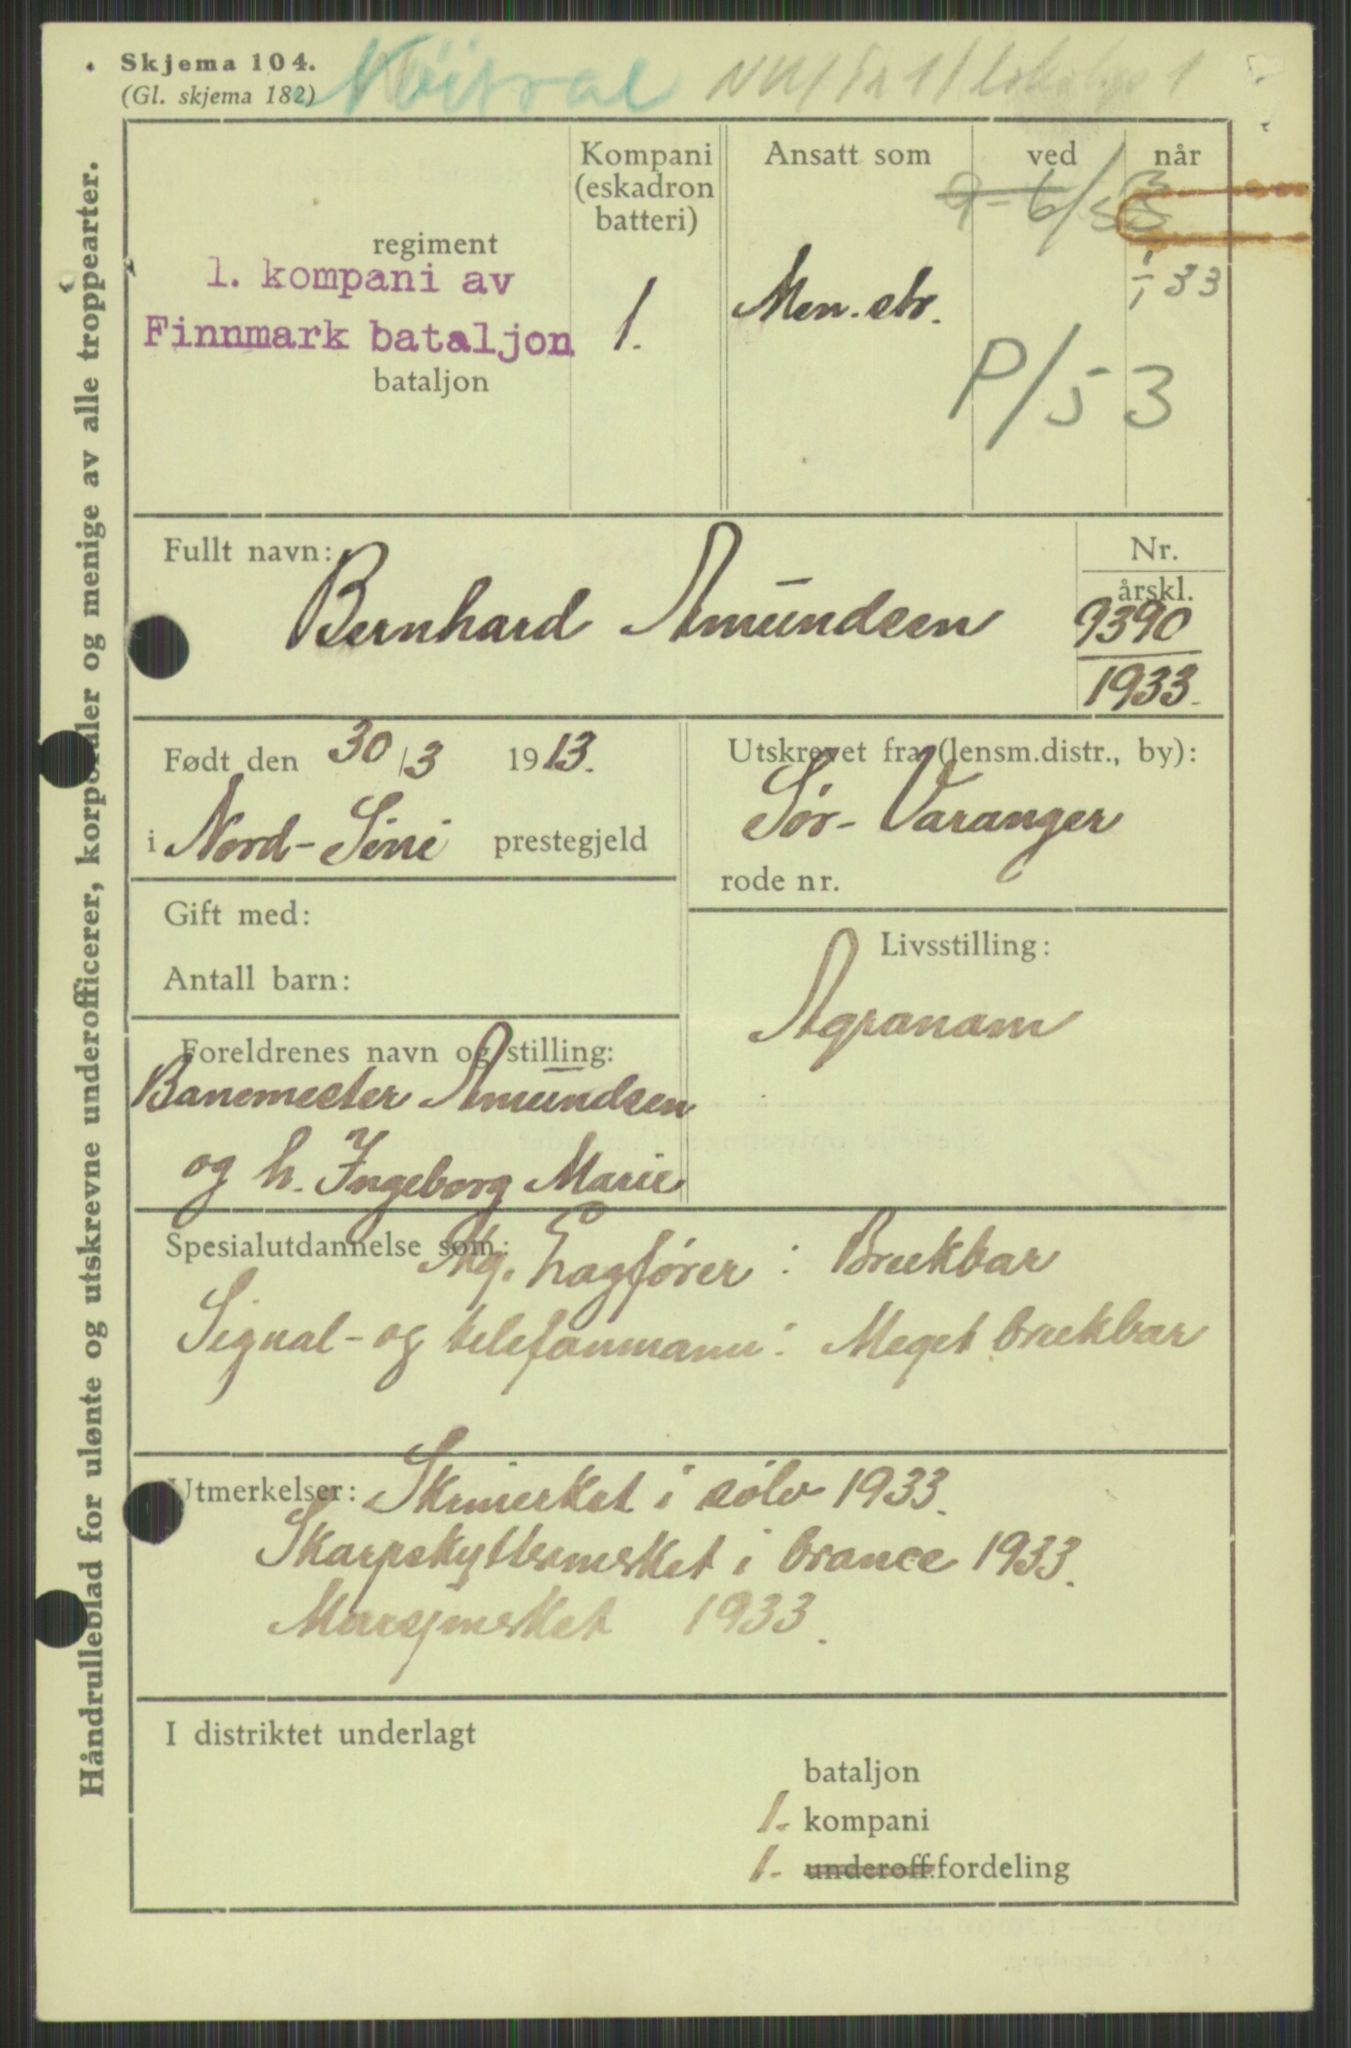 Skjema 104.
(Gl. skjema 182)
Nöitral
Håndrulleblad for ulønte og utskrevne underofficerer, korporaler og menige av alle troppearter.
regiment
1. kompani av
Finnmark bataljon
bataljon
Kompani
(eskadron
batteri)
1.
Ansatt som
Men. str.
ved
når
9-6/53
1/1 33
P/53
Fullt navn:
Bernhard Amundsen
Nr.
årskl.
9390
1933.
Født den 30/3 1913.
i Nord-Sini prestegjeld
Utskrevet fra (lensm.distr., by):
Sør-Varanger
rode nr.
Gift med:
Antall barn:
Livsstilling:
Agronom
Foreldrenes navn og stilling:
Banemester Amundsen
og h. Ingeborg Marie
Spesialutdannelse som: Mg. Lagfører: Brukbar
Signal- og telefonmann: Meget brukbar
Utmerkelser: Skimerket i sølv 1933.
Skarpskyttermerket i bronce 1933.
Marsjmerket 1933.
I distriktet underlagt
bataljon
1. kompani
1. underoff.fordeling